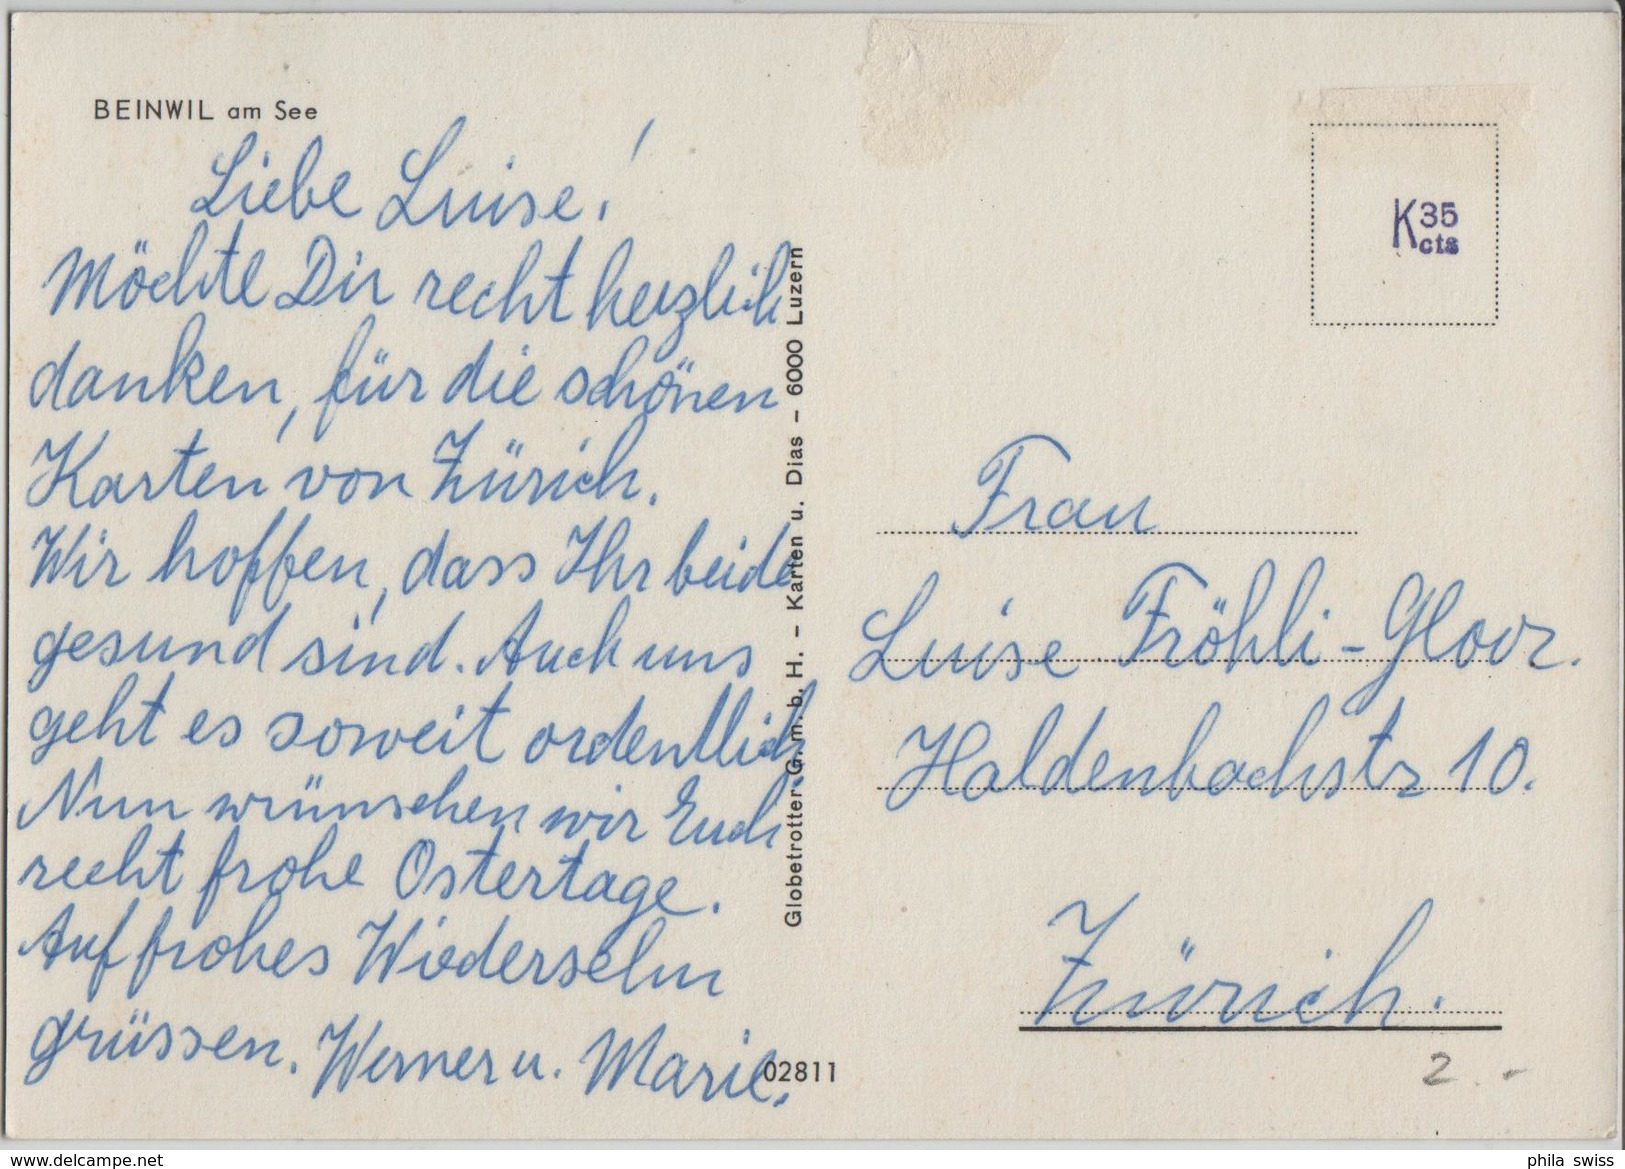 BEINWIL am See
Liebe Luise!
Möchte Dir recht herzlich
danken, für die schönen
Karten von Zürich.
Wir hoffen, dass Ihr beide
gesund sind. Auch uns
geht es soweit ordentlich.
Nun wünschen wir Euch
recht frohe Ostertage.
Auf frohes Wiedersehn
grüssen. Werner u. Marie.
Globetrotter G. m. b. H. – Karten u. Dias – 6000 Luzern
02811
K 35 cts
Frau
Luise Fröhli-Gloor.
Haldenbachstr 10.
Zürich.
2.-
delcampe.net
phila swiss